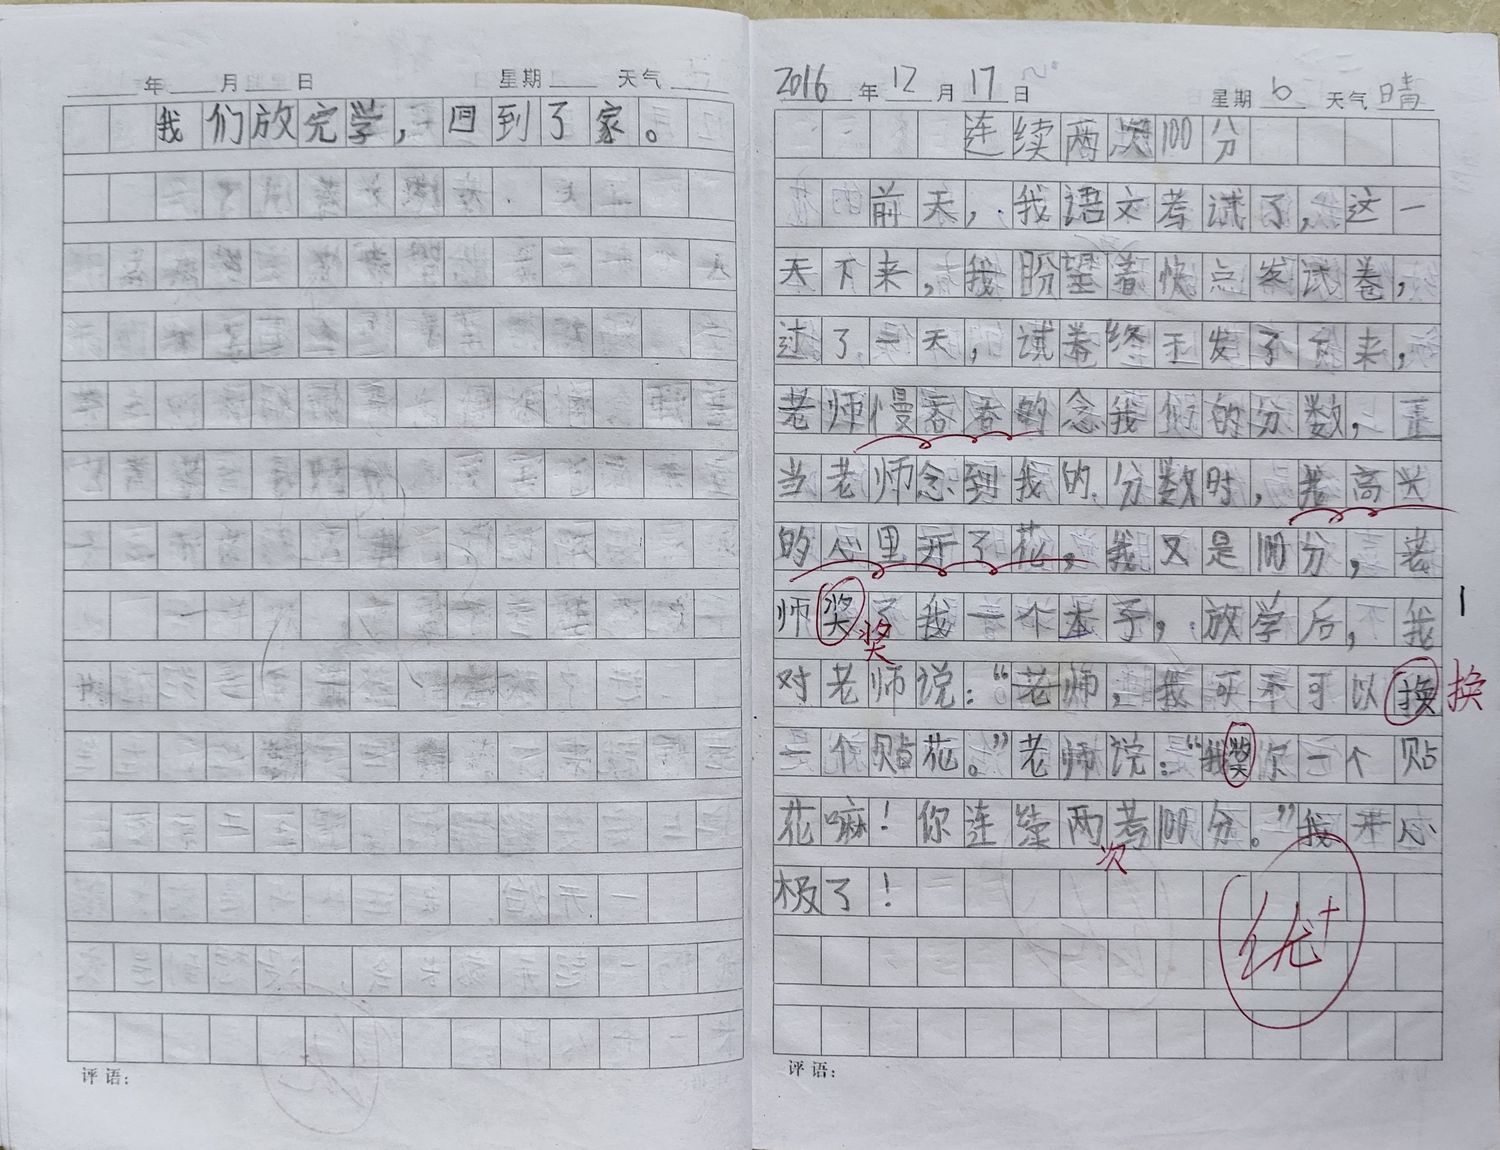 年 月 日 星期 天气
我们放完学，回到了家。
评语：
2016年12月17日 星期6 天气晴
连续两次100分
前天，我语文考试了，这一
天下来，我盼望着快点发试卷，
过了一天，试卷终于发了下来，
老师慢吞吞的念我们的分数，正
当老师念到我的分数时，我高兴
的心里开了花，我又是100分，老
师奖了我一个本子，放学后，我
奖
对老师说：“老师，我可不可以换
换
一个贴花。”老师说：“我奖你一个贴
花嘛！你连续两考100分。”我开心
次
极了！
优+
评语：